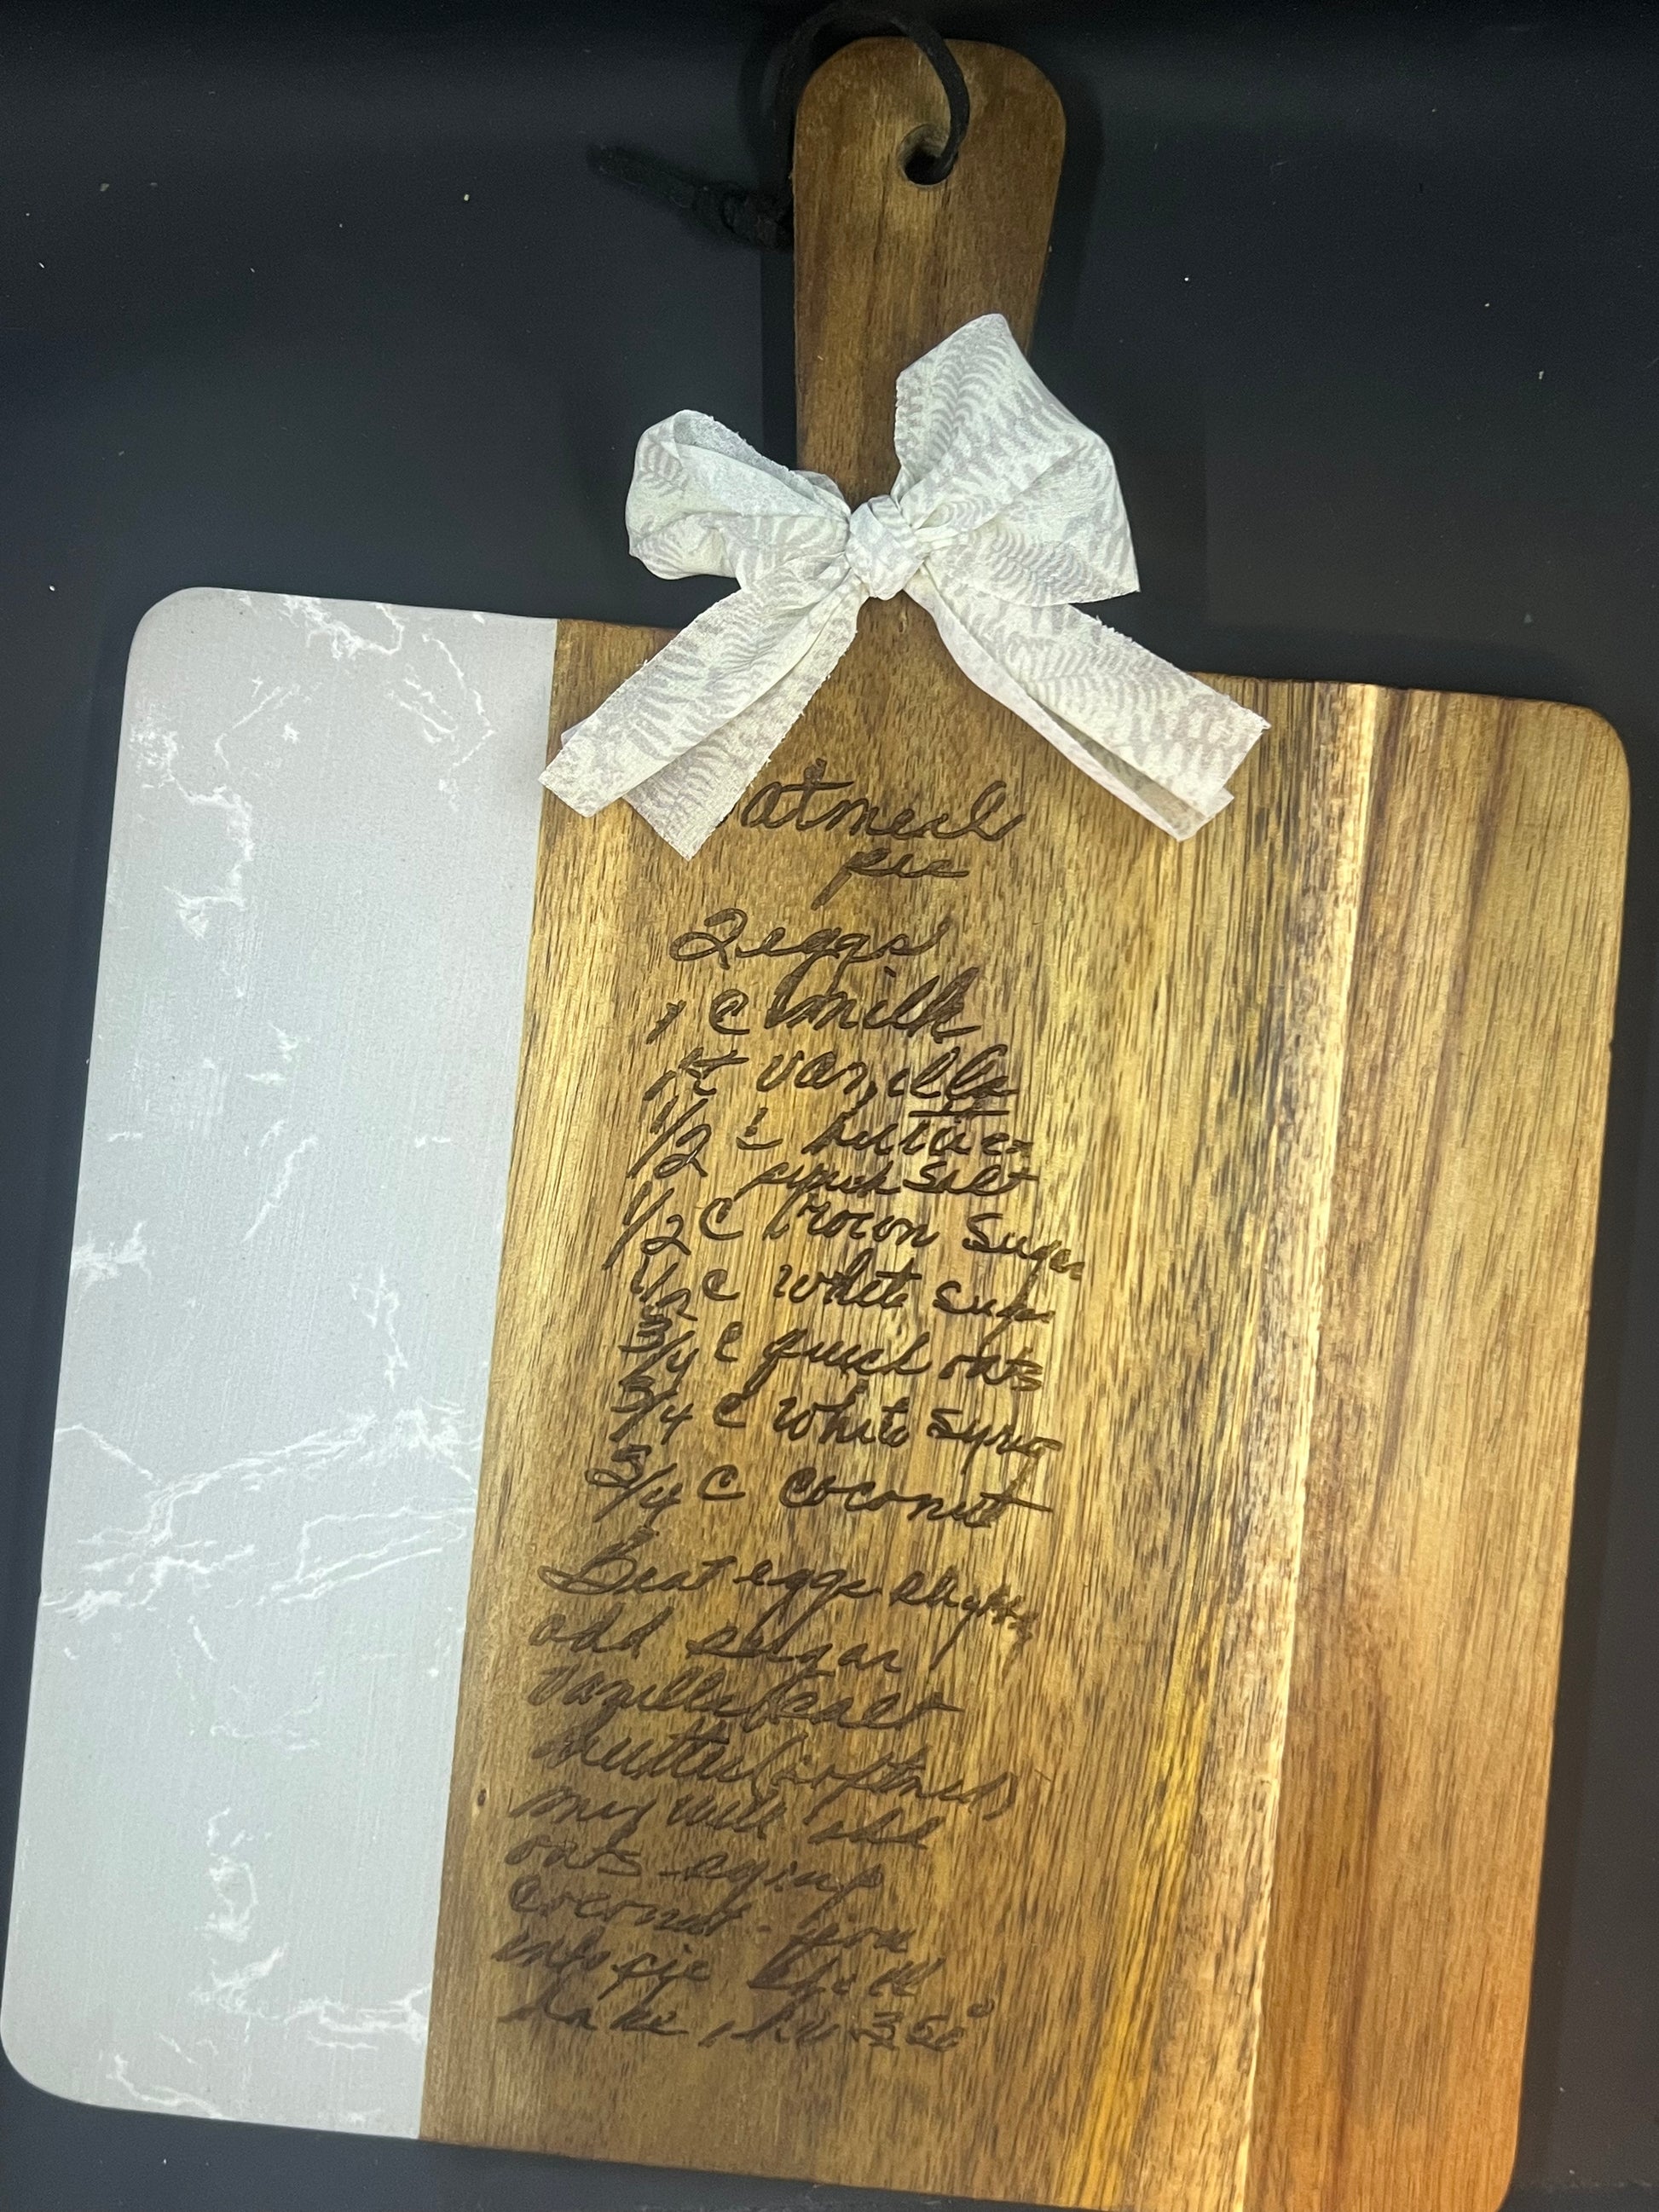 Oatmeal
pie
2 eggs
1 c milk
1 t vanilla
1/2 c butter
pinch salt
1/2 c brown sugar
1/2 c white sugar
3/4 c quick oats
3/4 c white syrup
3/4 c coconut
Beat eggs slightly
add sugar
vanilla & salt
butter (softned)
mix well add
oats syrup
coconut - pour
into pie shell
bake 1 hr 350°